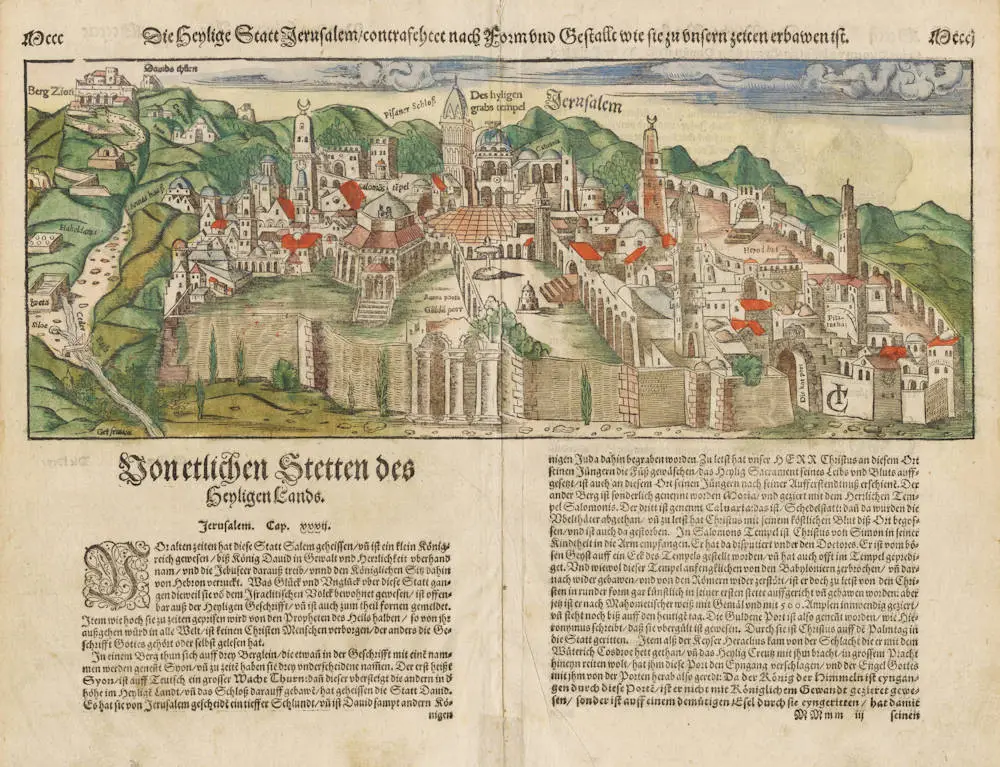 Mccc
Die Heylige Statt Jerusalem/contrafehtet nach Form vnd Gestallt wie sie zu vnsern zeiten erbawen ist.
Mcccj
Dauids thurn
Berg Zion
Pisaner Schloß
Des hyligen
grabs tempel
Jerusalem
Caluaria
Salomōs tēpel
Annas hauß
Hakeldama
Herodis hus
Aurea porta
Guldē port
Siloe
Pila-
tus hus
Getsemane
Von etlichen Stetten des
Heyligen Lands.
Jerusalem. Cap. xxxij.
VOr alten zeiten hat diese Statt Salem geheissen/vñ ist ein klein König-
reich gewesen/biß König Dauid in Gewalt vnd Herrlichkeit vberhand
nam/vnd die Jebuseer darauß treib/vnnd den Königlichen Sitz dahin
von Hebron verruckt. Was Glück vnd Vnglück vber diese Statt gan-
gen dieweil sie võ dem Israelitischen Volck bewohnet gewesen/ist offen-
bar auß der Heyligen Geschrifft/vñ ist auch zum theil fornen gemeldet.
Item wie hoch sie zu zeiten gepriesen wird von den Propheten des Heils halben/so von jhr
außgehen würd in alle Welt/ist keinen Christen Menschen verborgen/der anders die Ge-
schrifft Gottes gehört oder selbst gelesen hat.
In einem Berg thun sich auff drey Berglein/die etwañ in der Geschrifft mit einē nam-
men werden genēnt Syon/vñ zu zeiten haben sie drey vnderscheidene namen. Der erst heißt
Syon/ist auff Teutsch ein grosser Wacht Thurn: dañ dieser vbersteigt die andern in d̄
höhe im Heyligē Landt/vñ das Schloß darauff gebawt/hat geheissen die Statt Dauid.
Es hat sie von Jerusalem gescheidt ein tieffer Schlundt/vñ ist Dauid sampt andern Kö-
nigen
nigen Juda dahin begraben worden. Zu letst hat vnser HERR Christus an diesem Ort
seinen Jüngern die Füß gewäschen/das Heylig Sacrament seines Leibs vnd Bluts auff-
gesetzt/ist auch an diesem Ort seinen Jüngern nach seiner Aufferstendtnuß erschienē. Der
ander Berg ist sonderlich genennt worden Moria/vnd geziert mit dem Herrlichen Tem-
pel Salomonis. Der drit ist genennt Caluaria: das ist/Schedelstatt: dañ da wurden die
Vbelthäter abgethan/vñ zu letst hat Christus mit seinem köstlichen Blut diß Ort begos-
sen/vnd ist auch da gestorben. In Salomons Tempel ist Christus von Simon in seiner
Kindtheit in die Arm empfangen. Er hat da disputiert vnder den Doctores. Er ist vom bö-
sen Geyst auff ein Eck des Tempels gestellt worden/vñ hat auch offt im Tempel gepredi-
get. Vnd wiewol dieser Tempel anfenglichen von den Babyloniern zerbrochen/vñ dar-
nach wider gebawen/vnd von den Römern wider zerstört/ist er doch zu letst von den Chri-
sten in runder form gar künstlich in seiner ersten stette auffgericht vñ gebawen worden: aber
jetz ist er nach Mahometischer weiß mit Gemäl vnd mit 500. Amplen innwendig geziert/
vñ steht noch biß auff den heutigē tag. Die Guldene Port ist also genēnt worden/wie Hie-
ronymus schreibt/daß sie vbergült ist gewesen. Durch sie ist Christus auff dē Palmtag in
die Statt geritten. Item als der Keyser Heraclius kam von der Schlacht die er mit dem
Wüterich Cosdroe hett gethan/vñ das Heylig Creutz mit jhm bracht/in grossem Pracht
hineyn reiten wolt/hat jhm diese Port den Eyngang verschlagen/vnd der Engel Gottes
mit jhm von der Porten herab also geredt: Da der König der Himmeln ist eyngan-
gen durch diese Portē/ist er nicht mit Königlichem Gewandt gezieret gewe-
sen/sonder ist auff einem demütigen Esel durch sie eyngeritten/hat damit
MMmm iij
seinen